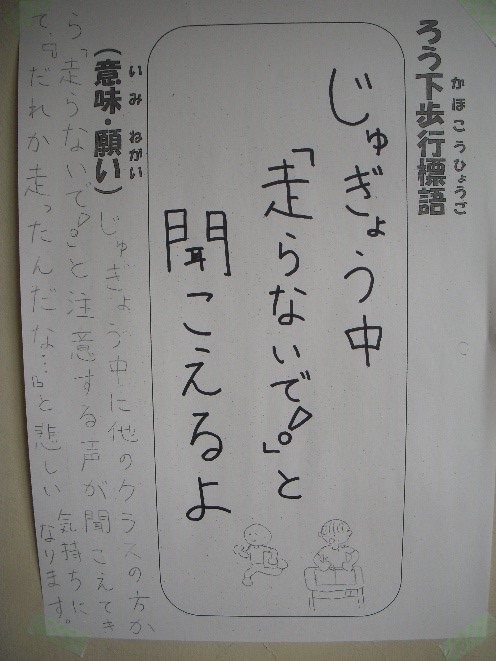 ろう下歩行標語
かほこうひょうご
じゅぎょう中
「走らないで!。」と
聞こえるよ
(意味・願い)
いみ ねがい
じゅぎょう中に他のクラスの方か
ら「走らないで!。」と注意する声が聞こえてき
て、『だれか走ったんだな…。』と悲しい気持ちに
なります。